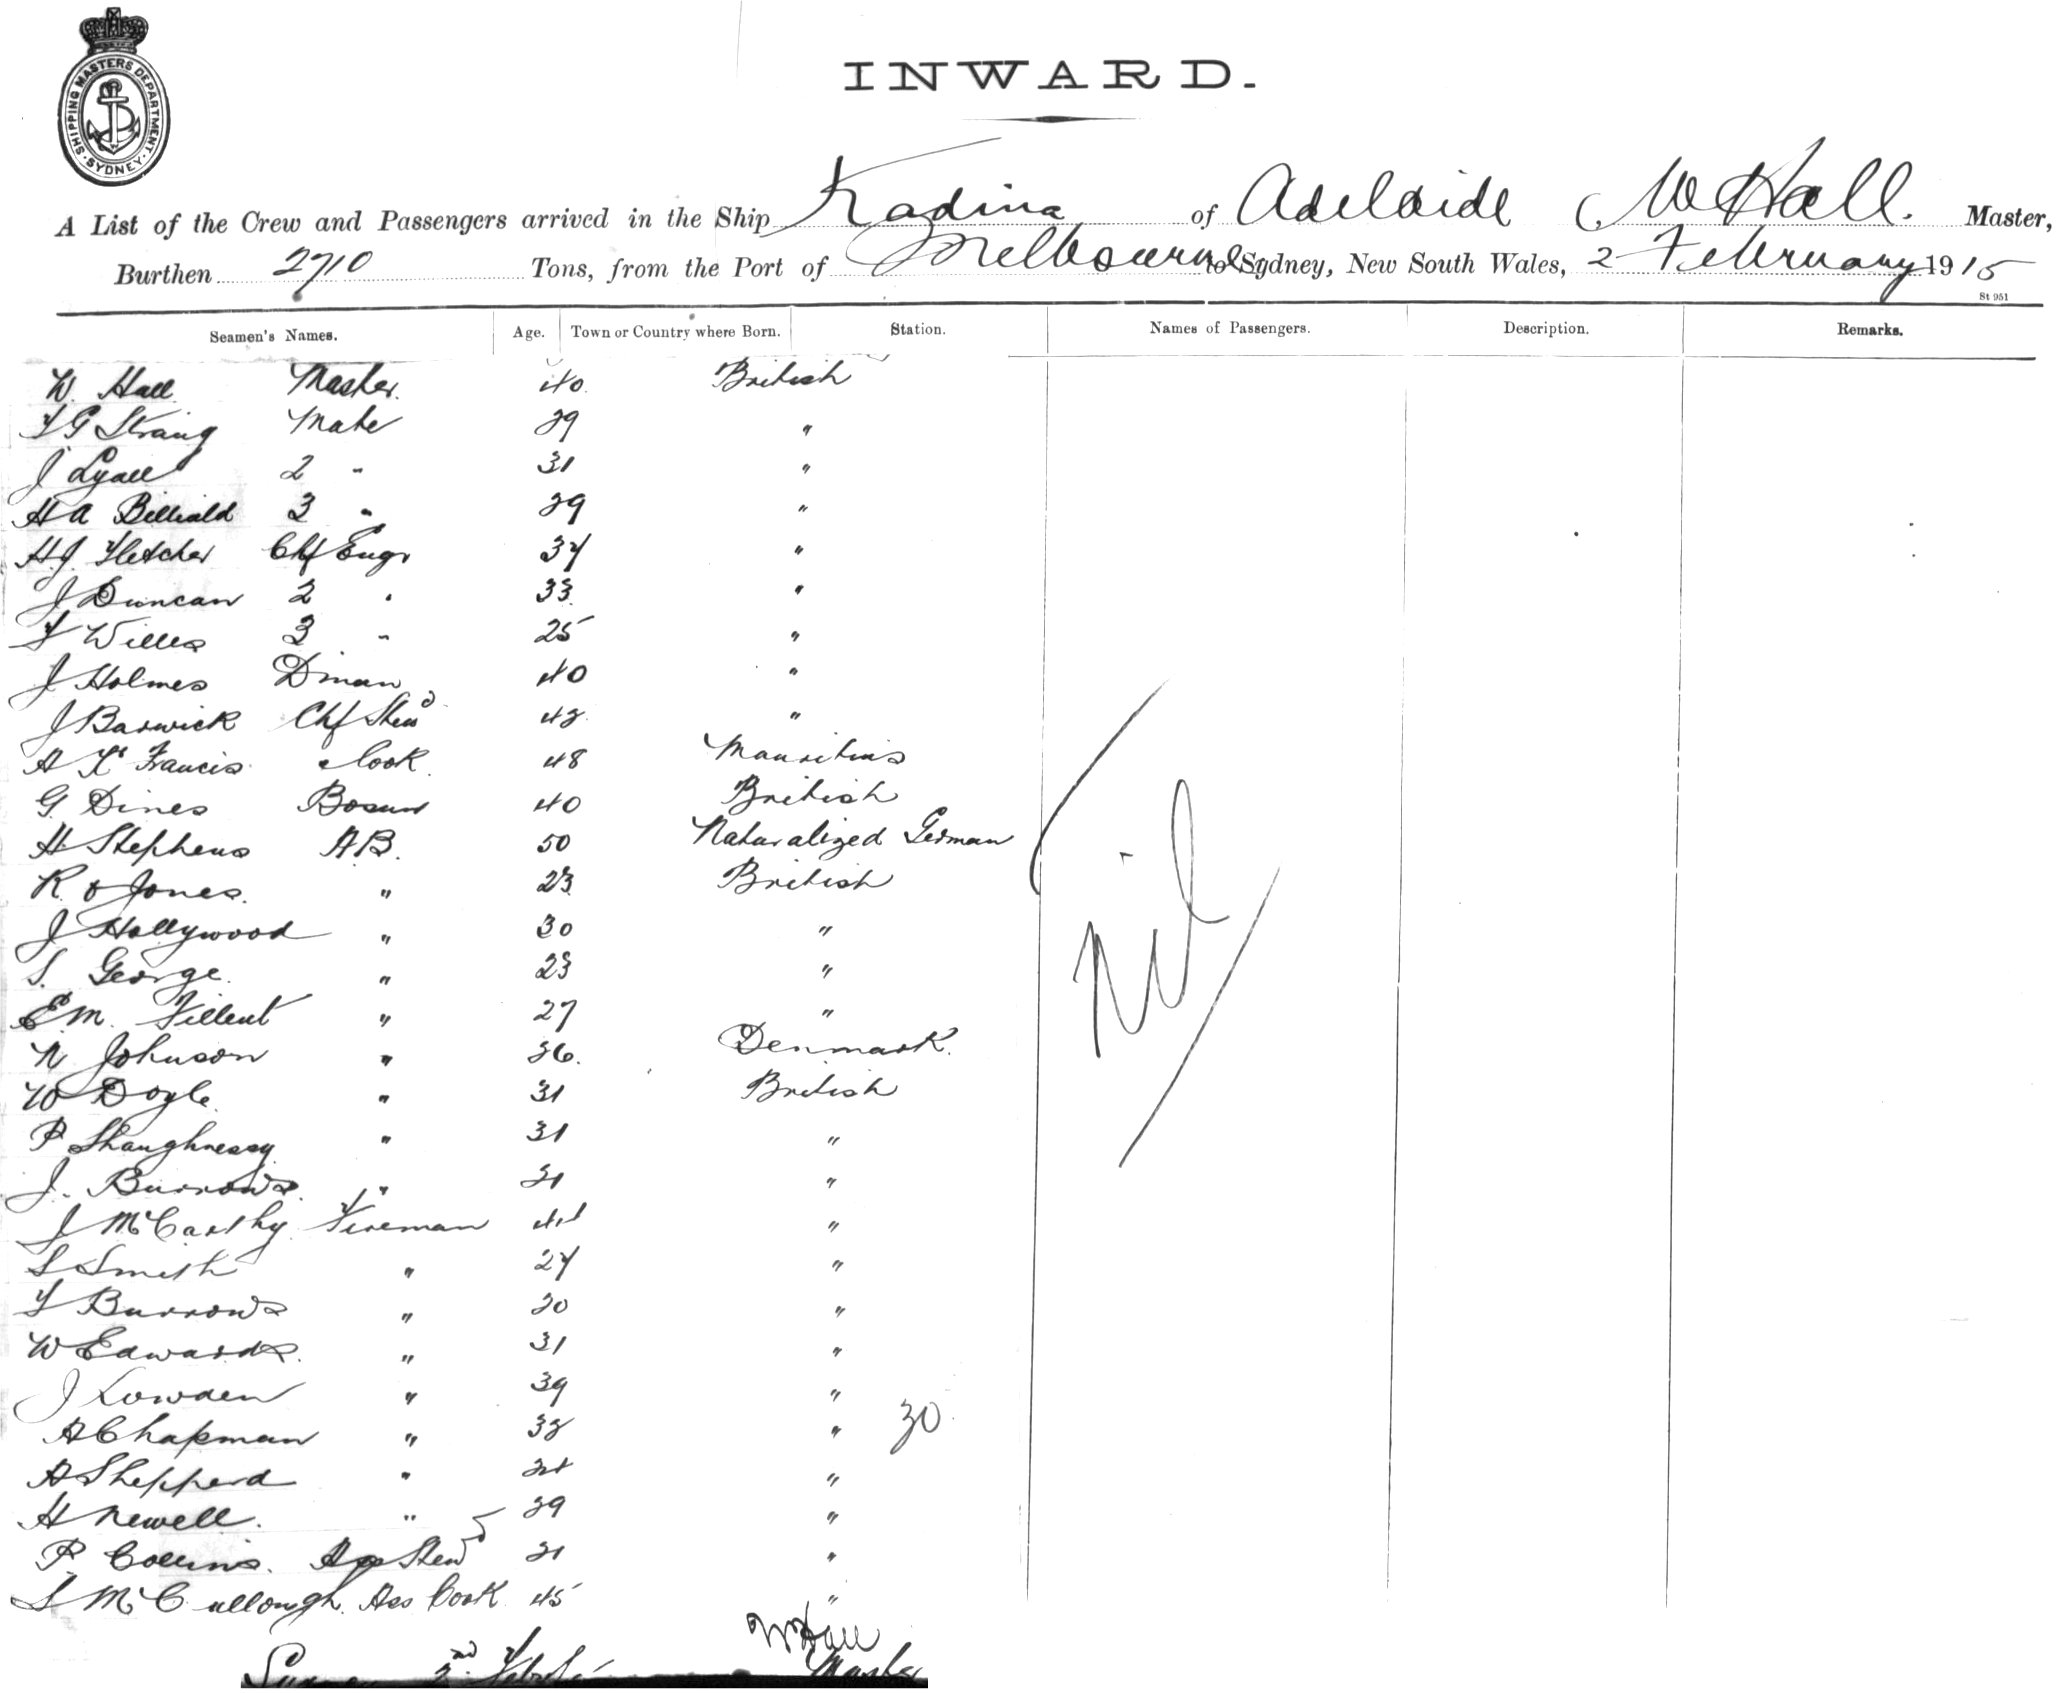 SHIPPING MASTERS DEPARTMENT. SYDNEY.
INWARD.
A List of the Crew and Passengers arrived in the Ship Kadina of Adelaide W Hall. Master,
Burthen 2710 Tons, from the Port of Melbourne to Sydney, New South Wales, 2 February 1915
St 951
Seamen's Names. Age. Town or Country where Born. Station. Names of Passengers. Description. Remarks.
W. Hall Master. 40. British
F G Strang Mate 29 "
J Lyall 2 " 31 "
H A Billiald 3 " 29 "
H.J. Fletcher Chf Engr 34 "
J Duncan 2 " 33 "
F Willis 3 " 25 "
J Holmes Dman 40 "
J Barwick Chf Stewd 42 "
A Francis Cook 48 Mauritius
G. Dines Bosun 40 British
H Stephens AB. 50 Naturalized German
R. Jones. " 23 British
J Hollywood " 30 "
S. George. " 23 "
E.M. Fillent " 27 "
N Johnson " 26. Denmark.
W Doyle " 31 British
P Shaughnessy " 31 "
J. Burrows " 21 "
J McCarthy Fireman 41 "
S Smith " 24 "
F Burrows " 20 "
W Edwards. " 31 "
J Lowden " 39 "
A Chapman " 32 " 30
A Shepperd " 24 "
H Newell. " 29 "
P. Collins. Stewd 21 "
S McCullough. Ass Cook 45 "
Nil
W Hall
2nd Master